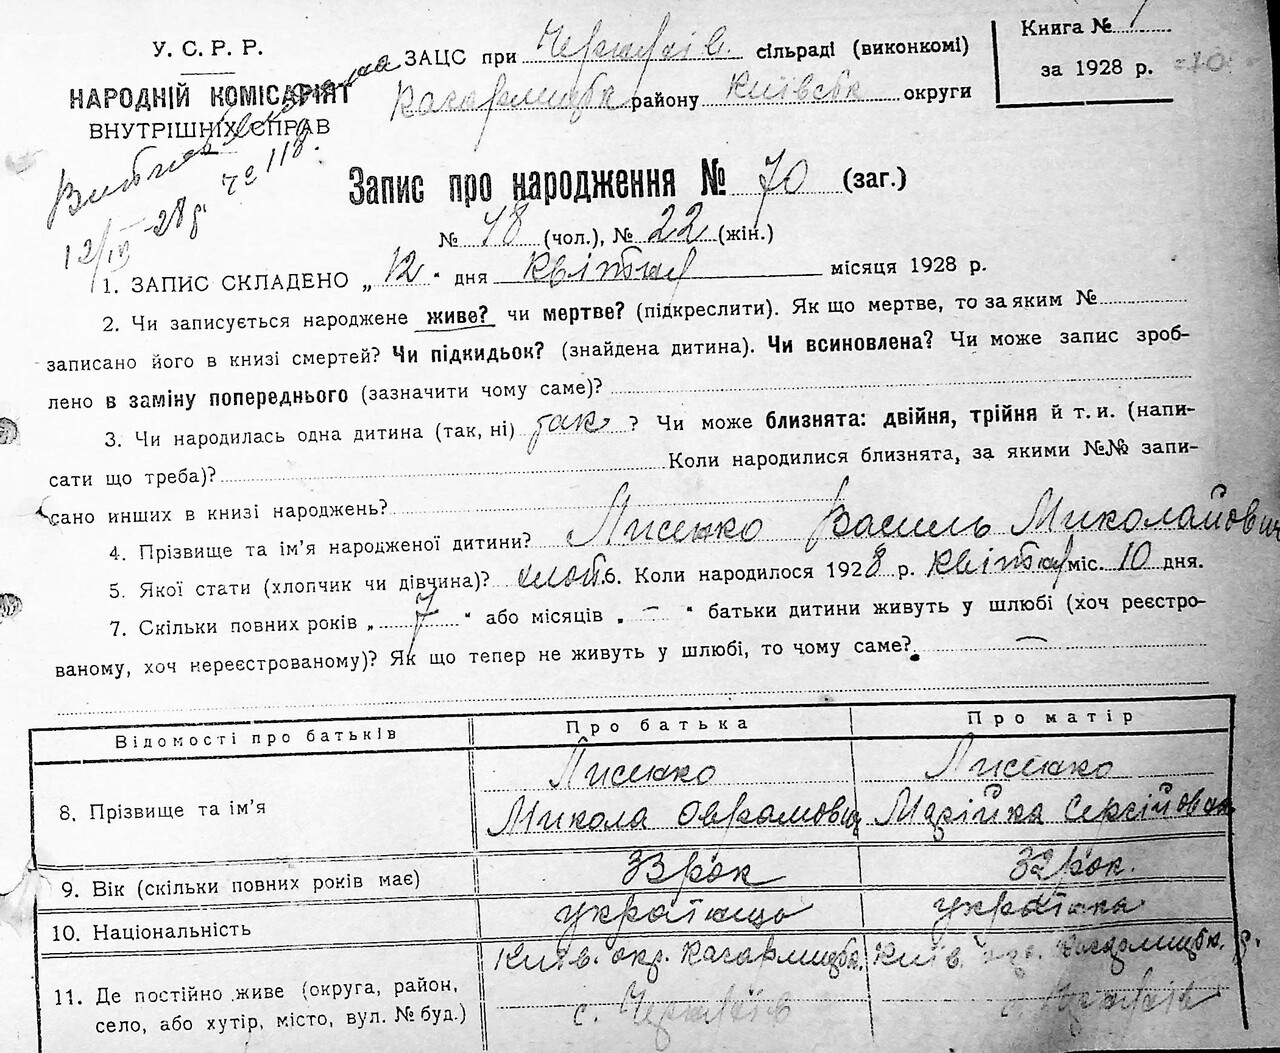 У. С. Р. Р.
НАРОДНІЙ КОМІСАРІЯТ
ВНУТРІШНІХ СПРАВ
12/IV 28 р. № 118.
ЗАЦС при сільраді (виконкомі)
Кагарлицьк району Київськ округи
Книга № 1
за 1928 р. 70
Запис про народження № 70 (заг.)
№ 48 (чол.), № 22 (жін.)
1. ЗАПИС СКЛАДЕНО „12" дня квітня місяця 1928 р.
2. Чи записується народжене живе? чи мертве? (підкреслити). Як що мертве, то за яким №
записано його в книзі смертей? Чи підкидьок? (знайдена дитина). Чи всиновлена? Чи може запис зроб-
лено в заміну попереднього (зазначити чому саме)?
3. Чи народилась одна дитина (так, ні) так ? Чи може близнята: двійня, трійня й т. и. (напи-
сати що треба)? Коли народилися близнята, за якими №№ запи-
сано инших в книзі народжень?
4. Прізвище та ім'я народженої дитини? Лисенко Василь Миколайович
5. Якої стати (хлопчик чи дівчина)? хлоп. 6. Коли народилося 1928 р. квітня міс. 10 дня.
7. Скільки повних років „ 7 " або місяців „ — " батьки дитини живуть у шлюбі (хоч реєстро-
ваному, хоч нереєстрованому)? Як що тепер не живуть у шлюбі, то чому саме? —
Відомості про батьків Про батька Про матір
8. Прізвище та ім'я Лисенко Микола Оврамович Лисенко Марійка Сергійовна
9. Вік (скільки повних років має) 33 рок 32 рок.
10. Національність українець українка
11. Де постійно живе (округа, район,
село, або хутір, місто, вул. № буд.)
Київ. окр. Кагарлицьк. Київ. окр. Кагарлицьк. р.
с. с.